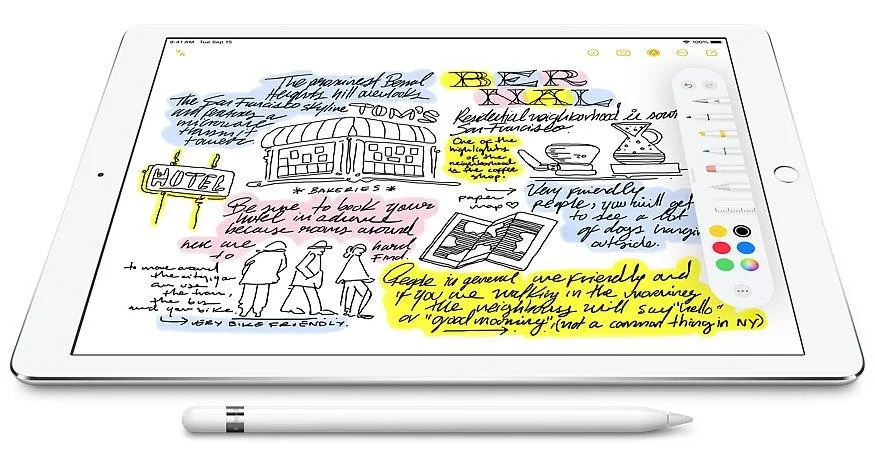 9:41 AM Tue Sep 15
100%
The prominest Bernal
Heights hill overlooks
the San Francisco skyline
and features a
microwave
transmit
tower
TOM'S
BER
NAL
Residential neighborhood in sout
San Francisco.
One of the
highlights
of the
neighborhood
is the coffee
shop.
HOTEL
* BAKERIES *
paper
map
Very friendly
people, you will get
to see a lot
of dogs hangin
outside.
Be sure to book your
hotel in advance
because rooms around
here are hard
to find.
to move around
the city, you
can use
the train,
the bus
and your bike.
VERY BIKE FRIENDLY.
People in general are friendly and
if you are walking in the morning
the neighbors will say "hello"
or "good morning", (not a common thing in NY)